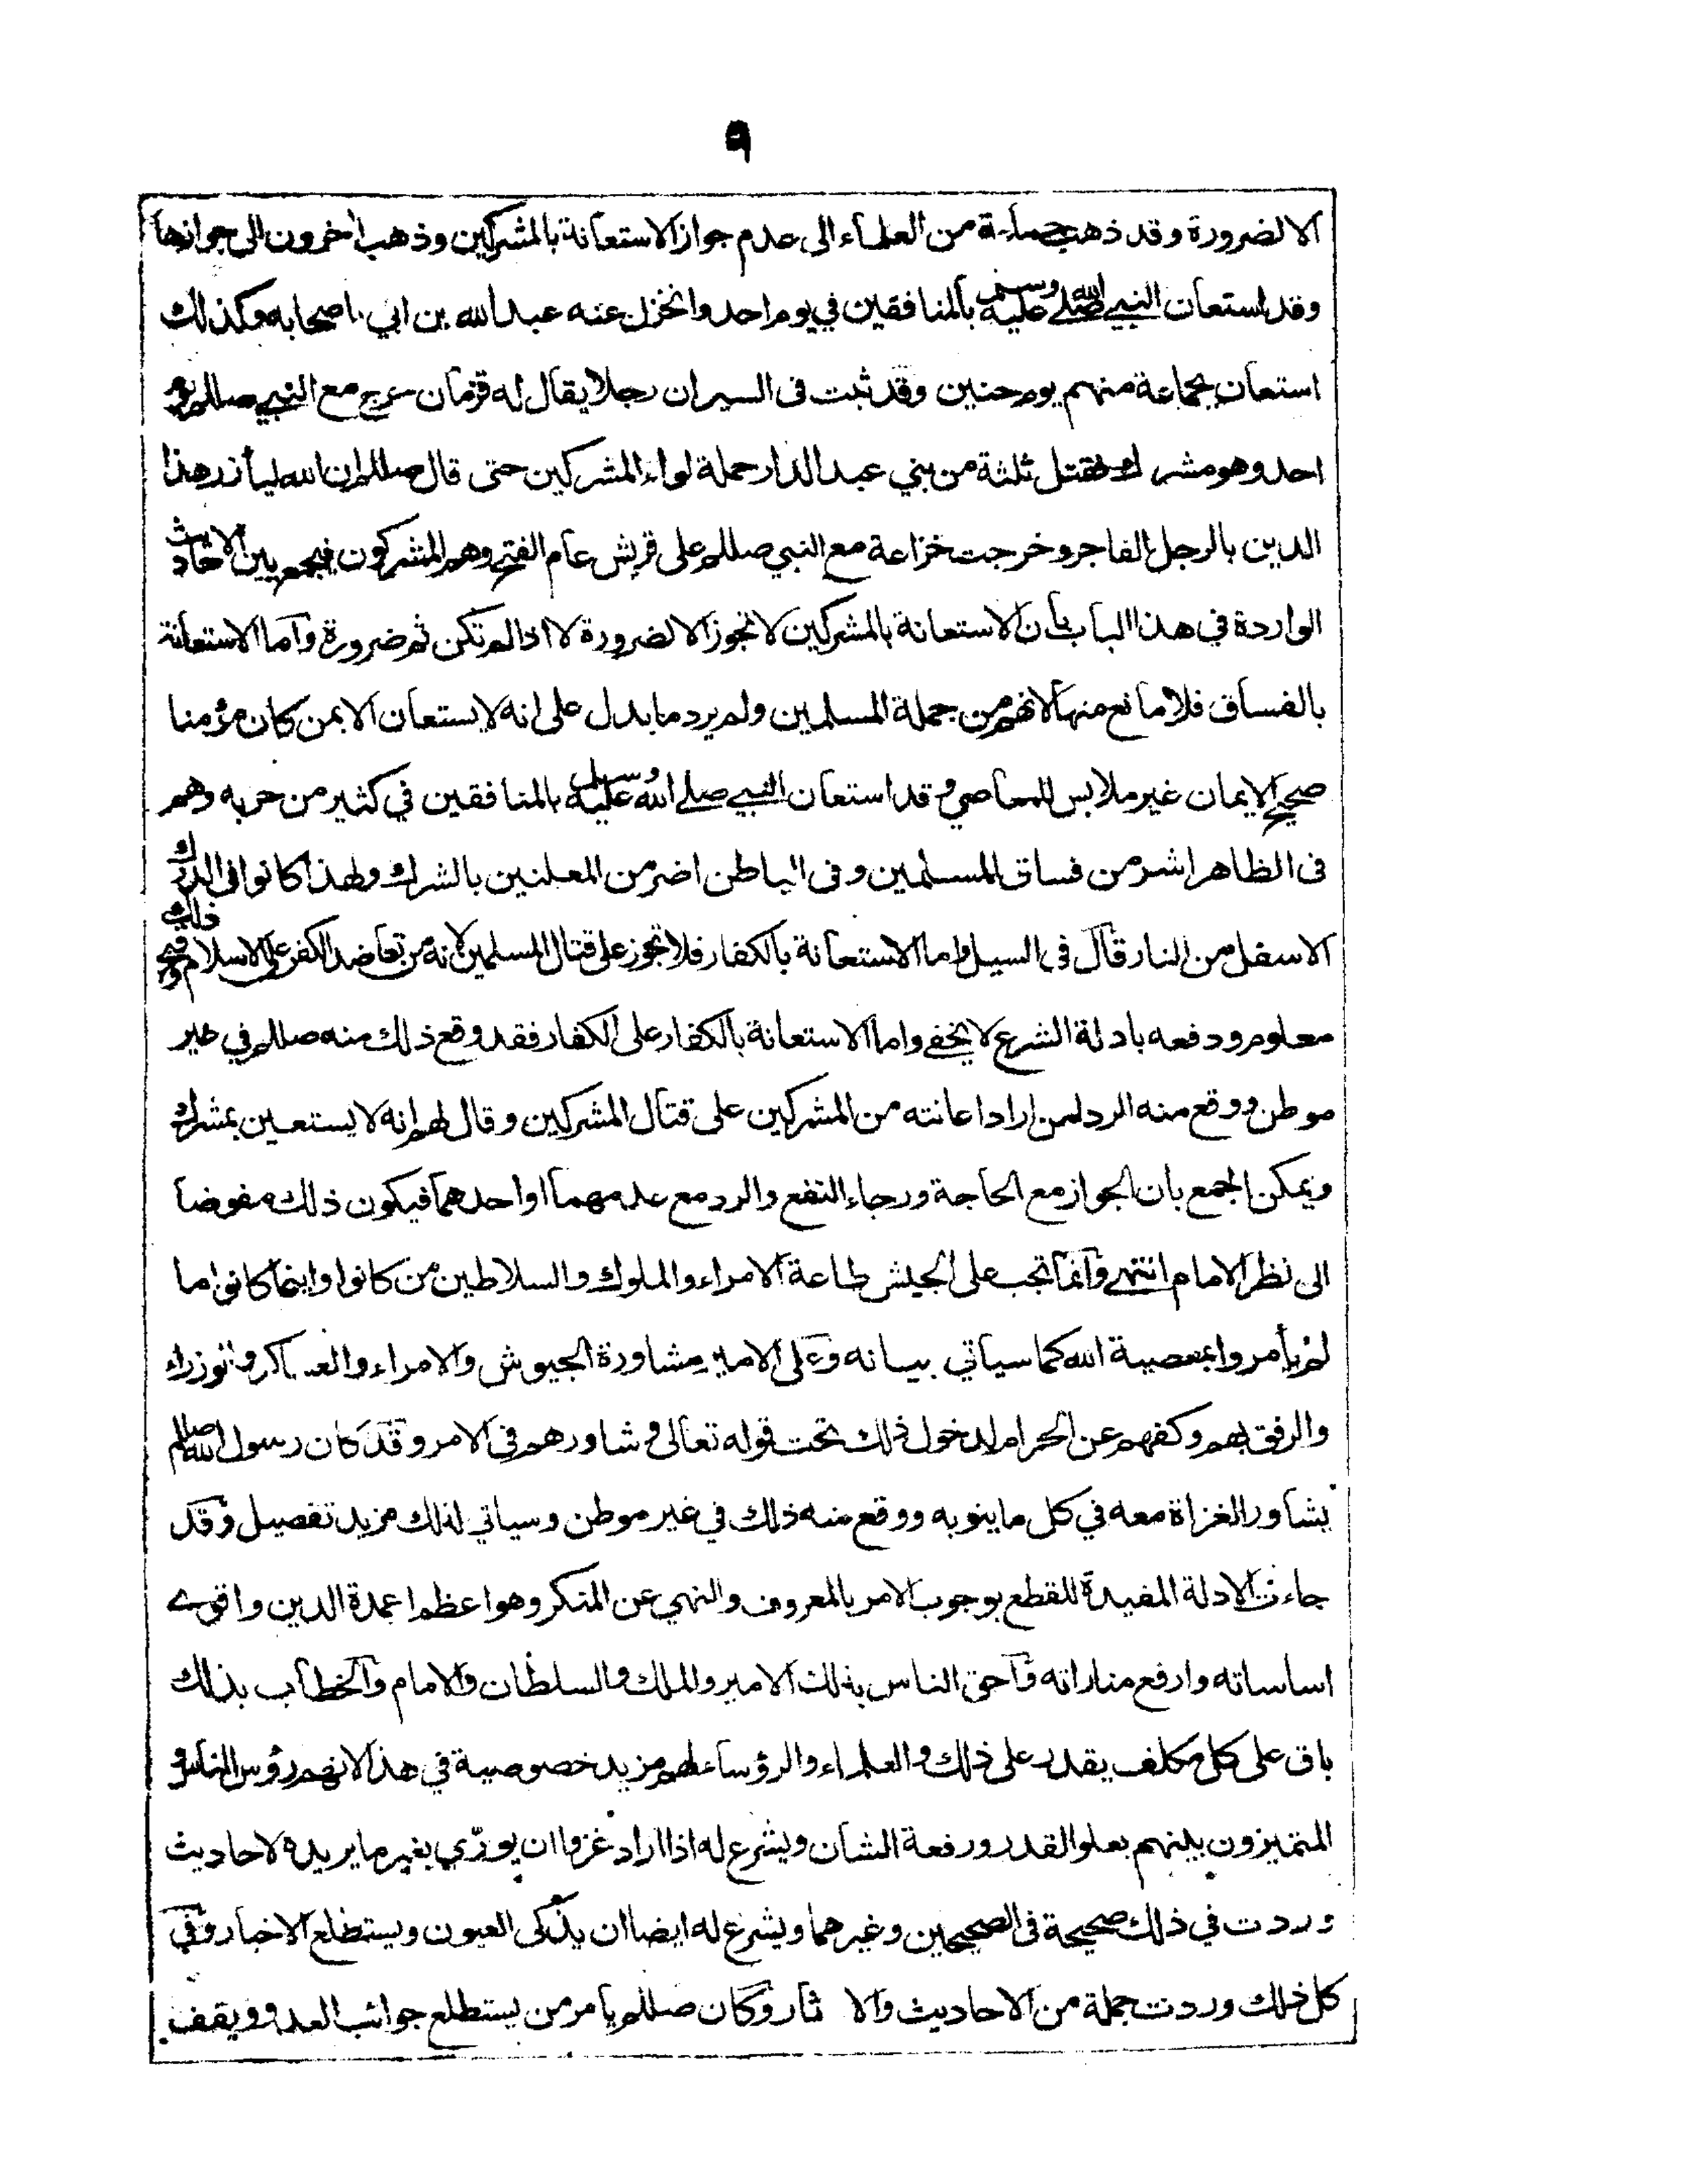 ٩
الا لضرورة وقد ذهب جماعة من العلماء الى عدم جواز الاستعانة بالمشركين وذهب اخرون الى جوازها
وقد استعان النبي صلى الله عليه وسلم بالمنافقين في يوم احد وانخزل عنه عبد الله بن ابي باصحابه وكذلك
استعان بجماعة منهم يوم حنين وقد ثبت فى السير ان رجلا يقال له قزمان خرج مع النبي صللم يوم
احد وهو مشرك فقتل ثلثة من بني عبد الدار حملة لواء المشركين حتى قال صللم ان الله ليأزر هذا
الدين بالرجل الفاجر وخرجت خزاعة مع النبي صللم على قريش عام الفتح وهم المشركون فيجمع بين الاحاديث
الواردة في هذا الباب بأن الاستعانة بالمشركين لا تجوز الا لضرورة لا اذا لم تكن ثم ضرورة واما الاستعانة
بالفساق فلا مانع منها لانهم من جملة المسلمين ولم يرد ما يدل على انه لا يستعان الا بمن كان مؤمنا
صحيح الايمان غير ملابس للمعاصي وقد استعان النبي صلى الله عليه وسلم بالمنافقين في كثير من حربه وهم
فى الظاهر اشر من فساق المسلمين وفى الباطن اضر من المعلنين بالشرك ولهذا كانوا فى الدرك
الاسفل من النار قال في السيل واما الاستعانة بالكفار فلا تجوز على قتال المسلمين لانه من تعاضد الكفر على الاسلام وقبح ذلك
معلوم ودفعه بادلة الشرع لا يخفى واما الاستعانة بالكفار على الكفار فقد وقع ذلك منه صللم في غير
موطن ووقع منه الرد لمن اراد اعانته من المشركين على قتال المشركين وقال لهم انه لا يستعين بمشرك
ويمكن الجمع بان الجواز مع الحاجة ورجاء النفع والرد مع عدمهما او احدهما فيكون ذلك مفوضا
الى نظر الامام انتهى وانما تجب على الجيش طاعة الامراء والملوك والسلاطين من كانوا واينما كانوا ما
لم يأمروا بمعصية الله كما سياتي بيانه وعلى الامير مشاورة الجيوش والامراء والعساكر والوزراء
والرفق بهم وكفهم عن الحرام لدخول ذلك تحت قوله تعالى وشاورهم فى الامر وقد كان رسول الله صللم
يشاور الغزاة معه في كل ما ينوبه ووقع منه ذلك في غير موطن وسياتي لذلك مزيد تفصيل وقد
جاءت الادلة المفيدة للقطع بوجوب الامر بالمعروف والنهي عن المنكر وهو اعظم اعمدة الدين واقوے
اساساته وارفع مناراته واحق الناس بذلك الامير والملك والسلطان والامام والخطاب بذلك
باق على كل مكلف يقدر على ذلك والعلماء والرؤساء لهم مزيد خصوصية في هذا لانهم رؤس الناس و
المتميزون بينهم بعلو القدر ورفعة الشان ويشرع له اذا اراد غزوا ان يورّي بغير ما يريده لاحاديث
وردت في ذلك صحيحة فى الصحيحين وغيرهما ويشرع له ايضا ان يذكى العيون ويستطلع الاخبار وفي
كل ذلك وردت جملة من الاحاديث والاثار وكان صللم يأمر من يستطلع جوائب العدو ويقف